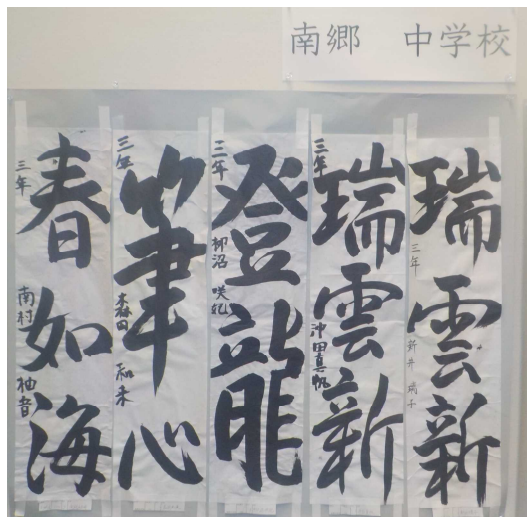 南郷 中学校
瑞雲新
三年
新井
瑞雲新
三年
沖田真帆
登龍
二年
柳沼 咲妃
筆心
三年
森田 和未
春如海
三年
南村 柚音